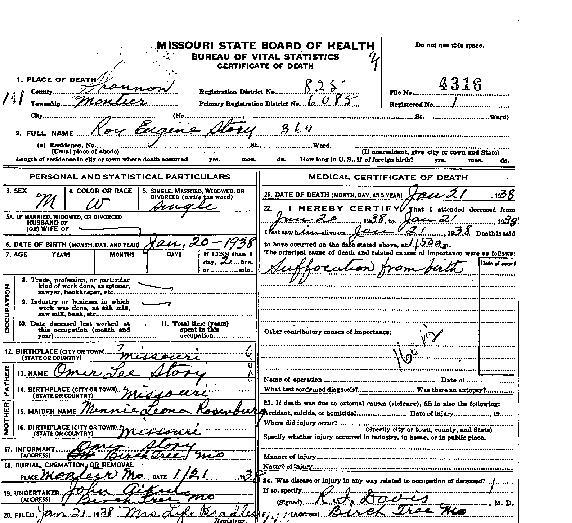 MISSOURI STATE BOARD OF HEALTH
BUREAU OF VITAL STATISTICS
CERTIFICATE OF DEATH
Do not use this space.
1. PLACE OF DEATH
County Shannon Registration District No. 825 File No. 4316
Township Montier Primary Registration District No. 6085 Registered No. 1
City (No. St. Ward)
2. FULL NAME Roy Eugene Story
(a) Residence, No. St. Ward.
(Usual place of abode) (If nonresident, give city or town and State)
Length of residence in city or town where death occurred yrs. mos. ds. How long in U. S., if of foreign birth? yrs. mos. ds.
PERSONAL AND STATISTICAL PARTICULARS
3. SEX M
4. COLOR OR RACE W
5. SINGLE, MARRIED, WIDOWED, OR DIVORCED (write the word) Single
5A. IF MARRIED, WIDOWED, OR DIVORCED
HUSBAND OF
(OR) WIFE OF
6. DATE OF BIRTH (MONTH, DAY, AND YEAR) Jan. 20 - 1938
7. AGE YEARS MONTHS DAYS If LESS than 1 day, 21 hrs. or min.
OCCUPATION
8. Trade, profession, or particular kind of work done, as spinner, sawyer, bookkeeper, etc.
9. Industry or business in which work was done, as silk mill, saw mill, bank, etc.
10. Date deceased last worked at this occupation (month and year)
11. Total time (years) spent in this occupation
12. BIRTHPLACE (CITY OR TOWN) Missouri
(STATE OR COUNTRY)
FATHER
13. NAME Omer Lee Story
14. BIRTHPLACE (CITY OR TOWN) Missouri
(STATE OR COUNTRY)
MOTHER
15. MAIDEN NAME Minnie Leona
16. BIRTHPLACE (CITY OR TOWN) Missouri
(STATE OR COUNTRY)
17. INFORMANT Story
(ADDRESS) Birch Tree Mo
18. BURIAL, CREMATION, OR REMOVAL
PLACE Montier Mo. DATE 1/21 38
19. UNDERTAKER John
(ADDRESS) Birch Tree Mo
20. FILED Jan 21, 1938 Mrs
Registrar.
MEDICAL CERTIFICATE OF DEATH
21. DATE OF DEATH (MONTH, DAY, AND YEAR) Jan 21 1938
22. I HEREBY CERTIFY, That I attended deceased from
Jan 20 1938, to Jan 21 1938
I last saw alive on Jan 21 1938 Death is said
to have occurred on the date stated above, at m.
The principal cause of death and related causes of importance were as follows:
Date of onset
Suffocation from birth
Other contributory causes of importance:
Name of operation Date of
What test confirmed diagnosis? Was there an autopsy?
23. If death was due to external causes (violence), fill in also the following:
Accident, suicide, or homicide? Date of injury 19
Where did injury occur?
(Specify city or town, county, and State)
Specify whether injury occurred in industry, in home, or in public place.
Manner of injury
Nature of injury
24. Was disease or injury in any way related to occupation of deceased?
If so, specify
(Signed) R. S. Davis M. D.
(Address) Birch Tree Mo